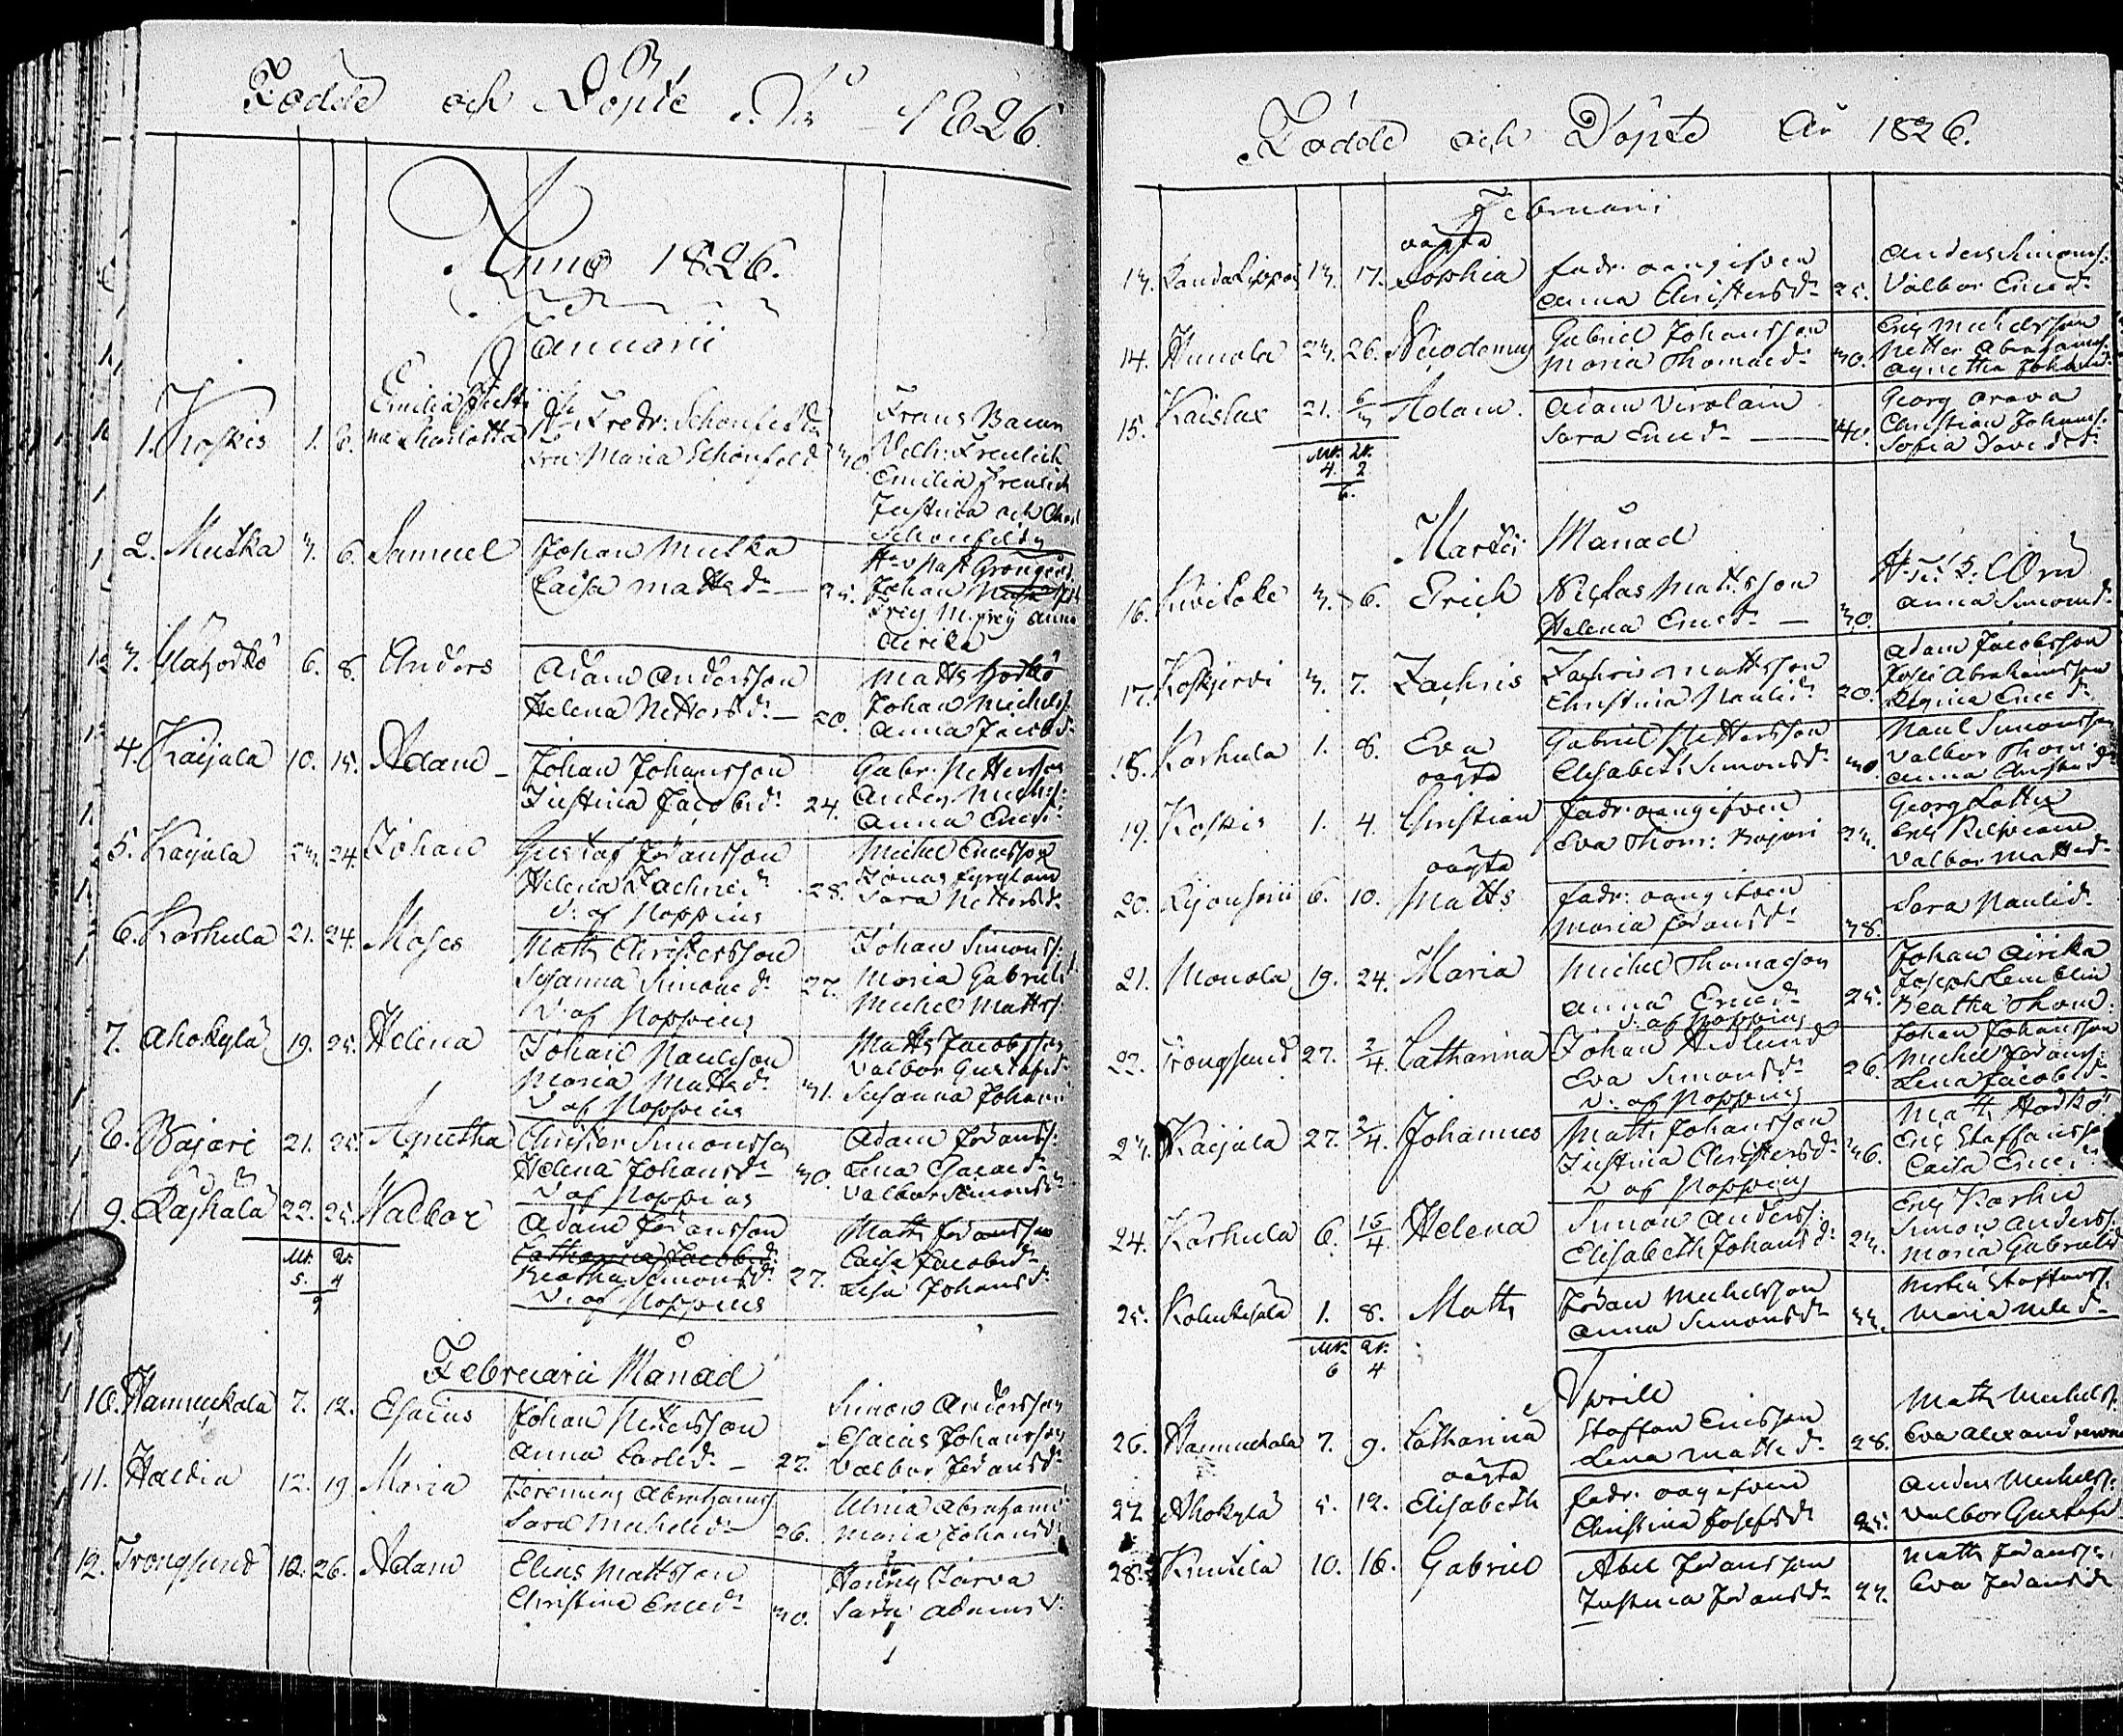 Födde och Döpte År 1826.
Anno 1826.
Januarii
1. Koskis 1. 8. Emilia Justi
na Charlotta
Fredr: Schönfeldt
Fru Maria Schönfeld 30.
Frans
Wilh: Freulich
Emilia Freulich
Justina och
Schönfeldt
2. Mutka 3. 6. Samuel
Johan Mutka
Caisa Mattsdr — 25.
Johan
Airika
3. 6. 8. Anders
Adam Andersson
Helena Pettersdr — 20.
Matts
Johan Michelss:
Anna Jacobsd:
4. Kaijala 10. 15. Adam
Johan Johansson
Justina Jacobsd: 24.
Gabr: Pettersson
Anders Michelss:
Anna Ericsd:
5. Kaijala 23. 24. Johan
Gustaf Johansson
Helena Zachrisd: 28.
V: af Hoppius
Michel Ericsson
Jonas
Sara Pettersd:
6. Karhula 21. 24. Moses
Matts Christersson
Susanna Simonsd: 27.
V: af Hoppius
Johan Simonss:
Maria Gabrielsd:
Michel Mattss:
7. Ahokylä 19. 25. Helena
Johan Paulsson
Maria Mattsd: 31.
V: af Hoppius
Matts Jacobsson
Valbor Gustafsd:
Susanna Johans
8. Pajari 21. 25. Agnetha
Christer Simonsson
Helena Johansd: 30.
V: af Hoppius
Adam Johanss:
Lena
Valbor Simonsd:
9. 22. 25. Valbor
Adam Johansson
Catharina Jacobsd:
Beatha Simonsd: 27.
V: af Hoppius
Matts Johansson
Caisa Jacobsd:
Lisa Johansd:
Mk: Qk:
5. 4
9
Februarii Månad
10. Hannukala 7. 12. Esaias
Johan Pettersson
Anna Carlsd: — 27.
Simon Andersson
Esaias Johansson
Valbor Johansd:
11. 12. 19 Maria
Jeremias Abrahams
Sara Michelsd: 26.
Ulrica Abrahams
Maria Johansd:
12. Trongsund 12. 26. Adam
Elias Mattsson
Christina Ericsd: 30.
Sara Adamsd:
Födde och Döpte År 1826.
Februari
13. 13. 17. oägta
Sophia
fadr: oangifven
Anna Christersd: 25.
Anders Simons:
Valbor Ericsd:
14. Hunola 23. 26. Nicodemus
Gabriel Johansson
Maria Thomasd: 30.
Eric Michelsson
Petter Abrahams:
Agnetha Johansd:
15. Kaislax 21. 6/3 Adam.
Adam Virolain
Sara Ericsd: — 40.
Georg Orava
Christian Johanns:
Sofia Davidsd:
Mk: Qk:
4. 2
6.
Martii Månad
16. 3. 6. Erich
Niclas Mattsson
Helena Ericsd: — 30.
Anna Simonsd:
17. Koskjervi 3. 7. Zachris
Zachris Mattsson
Christina Paulsd: 20.
Adam Jacobsson
Josef Abrahamsson
Regina Ericsd:
18. Karhula 1. 8. Eva
Gabriel Pettersson
Elisabeth Simonsd: 30.
Paul Simonsson
Valbor Thom:
Anna Christersd:
19. Koskis 1. 4. oägta
Christian
fadr: oangifven
Eva Thom: Pajari 23.
Georg
Eric
Valbor Mattsd:
20. 6. 10. oägta
Matts
fadr: oangifven
Maria Johansd: 38.
Sara Paulsd:
21. Monola 19. 24. Maria
Michel Thomasson
Anna Ericsd: 25.
V: af Hoppius
Johan Airika
Joseph
Beatha Thom:
22. Trongsund 27. 2/4 Catharina
Johan Hedlund
Eva Simonsd: 26.
V: af Hoppius
Johan Johansson
Michel Johanss:
Lena Jacobsd:
23. Kaijala 27. 2/4. Johannes
Matts Johansson
Justina Christersd: 36.
V af Hoppius
Matts
Eric Staffansson
Caisa Ericsd:
24. Karhula 6. 15/4 Helena
Simon Anderss:
Elisabeth Johansd: 23.
Eric Karhu
Simon Anderss:
Maria Gabrielsd
25. 1. 8. Matts
Johan Michelsson
Anna Simonsd: 33.
Staffanss:
Maria Nilsd:
Mk: Qk:
6 4
Aprill
26. Hannukala 7. 9. Catharina
Staffan Ericsson
Lena Mattsd: 28.
Matts Michelss:
Eva
27 Ahokylä 5. 12. oägta
Elisabeth
fadr: oangifven
Christina Josefsd: 25.
Anders Michelss:
Valbor Gustafsd
28. 10. 16. Gabriel
Abel Johansson
Justina Johansd: 27.
Matts Johanss:
Eva Johansd: